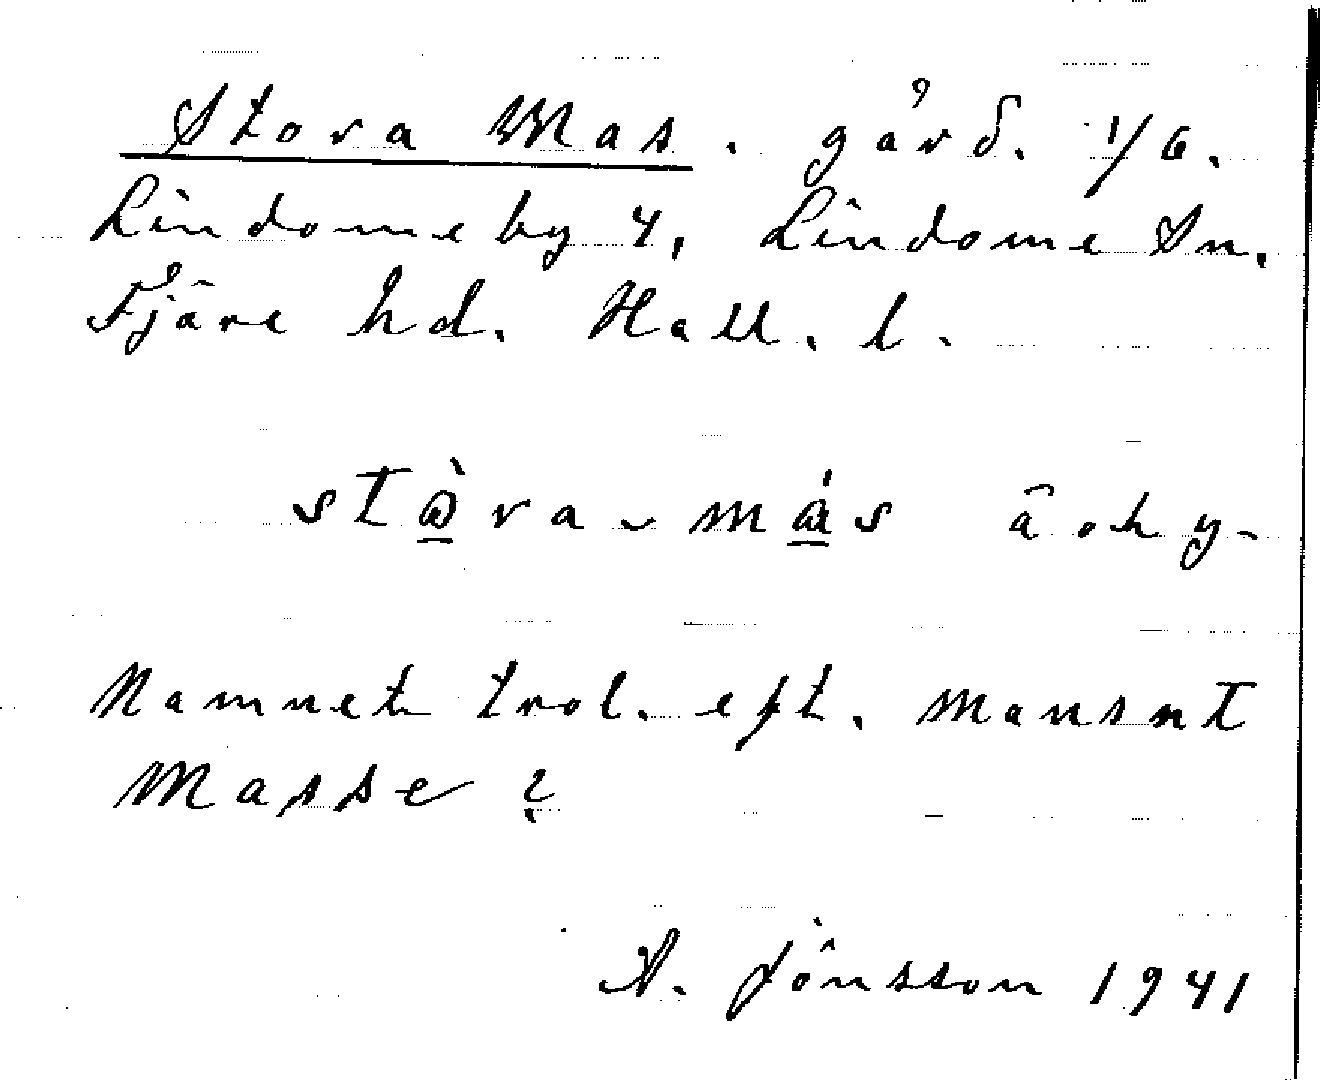 Stora Mas. gård. 1/6.
Lindome by 4, Lindome Sn.
Fjäre hd. Hall. l.
stàra-más
Namnet trol. eft. mansnt
Masse?
A. Jönsson 1941